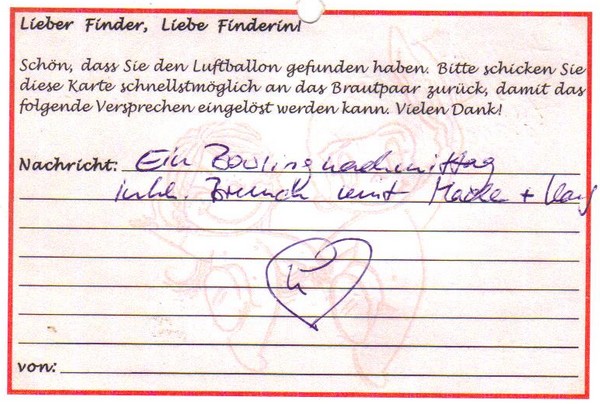 Lieber Finder, Liebe Finderin!
Schön, dass Sie den Luftballon gefunden haben. Bitte schicken Sie
diese Karte schnellstmöglich an das Brautpaar zurück, damit das
folgende Versprechen eingelöst werden kann. Vielen Dank!
Nachricht: Ein Bowlingnachmittag
inkl. Brunch mit +
von: